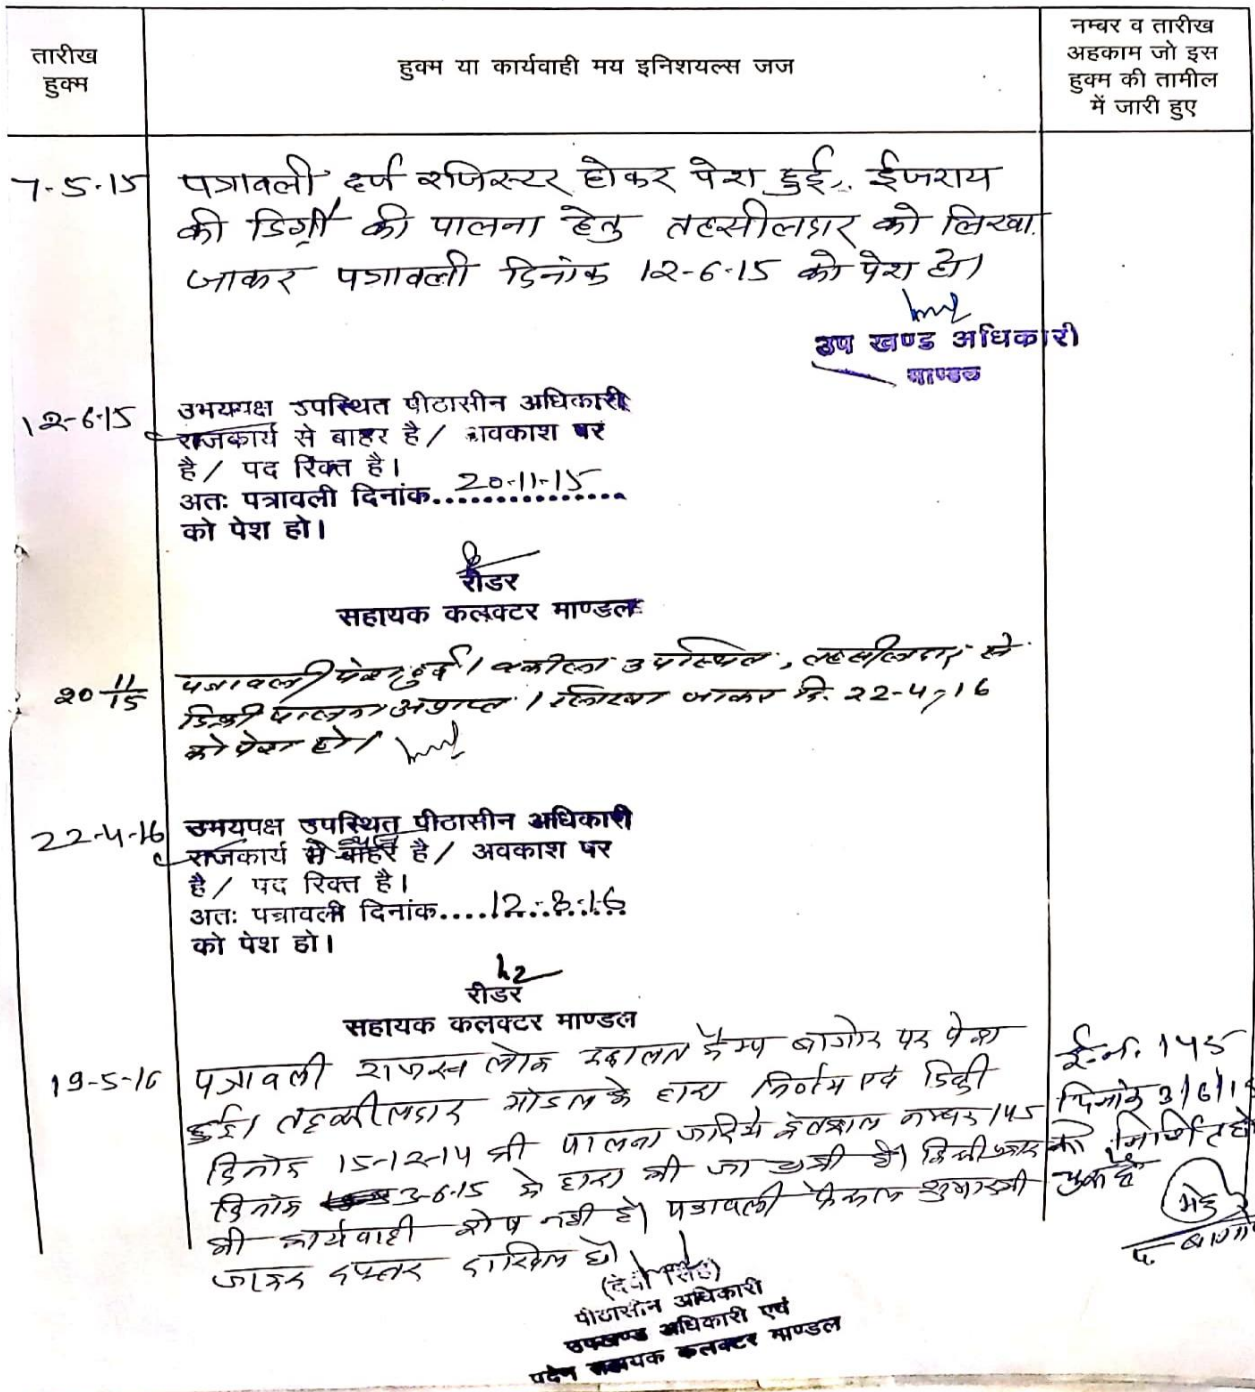 तारीख
हुक्म
हुक्म या कार्यवाही मय इनिशयल्स जज
नम्बर व तारीख
अहकाम जो इस
हुक्म की तामील
में जारी हुए
7-5-15
पत्रावली दर्ज रजिस्टर होकर पेश हुई। ईजराय
की डिग्री की पालना हेतु तहसीलदार को लिखा
जाकर पत्रावली दिनांक 12-6-15 को पेश हो।
उप खण्ड अधिकारी
माण्डल
12-6-15
उभयपक्ष उपस्थित पीठासीन अधिकारी
राजकार्य से बाहर है / अवकाश पर
है / पद रिक्त है।
अतः पत्रावली दिनांक....20-11-15....
को पेश हो।
रीडर
सहायक कलक्टर माण्डल
20 11/15
पत्रावली पेश हुई। वकील उपस्थित, तहसीलदार से
डिक्री पालना अप्राप्त। लिखा जाकर दि. 22-4-16
को पेश हो।
22-4-16
उभयपक्ष उपस्थित पीठासीन अधिकारी
राजकार्य में है / अवकाश पर
है / पद रिक्त है।
अतः पत्रावली दिनांक....12-8-16
को पेश हो।
रीडर
सहायक कलक्टर माण्डल
19-5-16
पत्रावली राजस्व लोक अदालत कैम्प बागोर पर पेश
हुई। तहसीलदार मांडल के द्वारा निर्णय एवं डिक्री
दिनांक 15-12-14 की पालना जरिये नम्बर 145
दिनांक 3-6-15 के द्वारा की जा चुकी है।
की कार्यवाही शेष नहीं है। पत्रावली फैसल शुमार की
जाकर दफ्तर दाखिल हो।
ई.न. 145
दिनांक 3/6/15
को निर्णित हो
चुका है
(देवी सिंह)
पीठासीन अधिकारी
उपखण्ड अधिकारी एवं
पदेन सहायक कलक्टर माण्डल